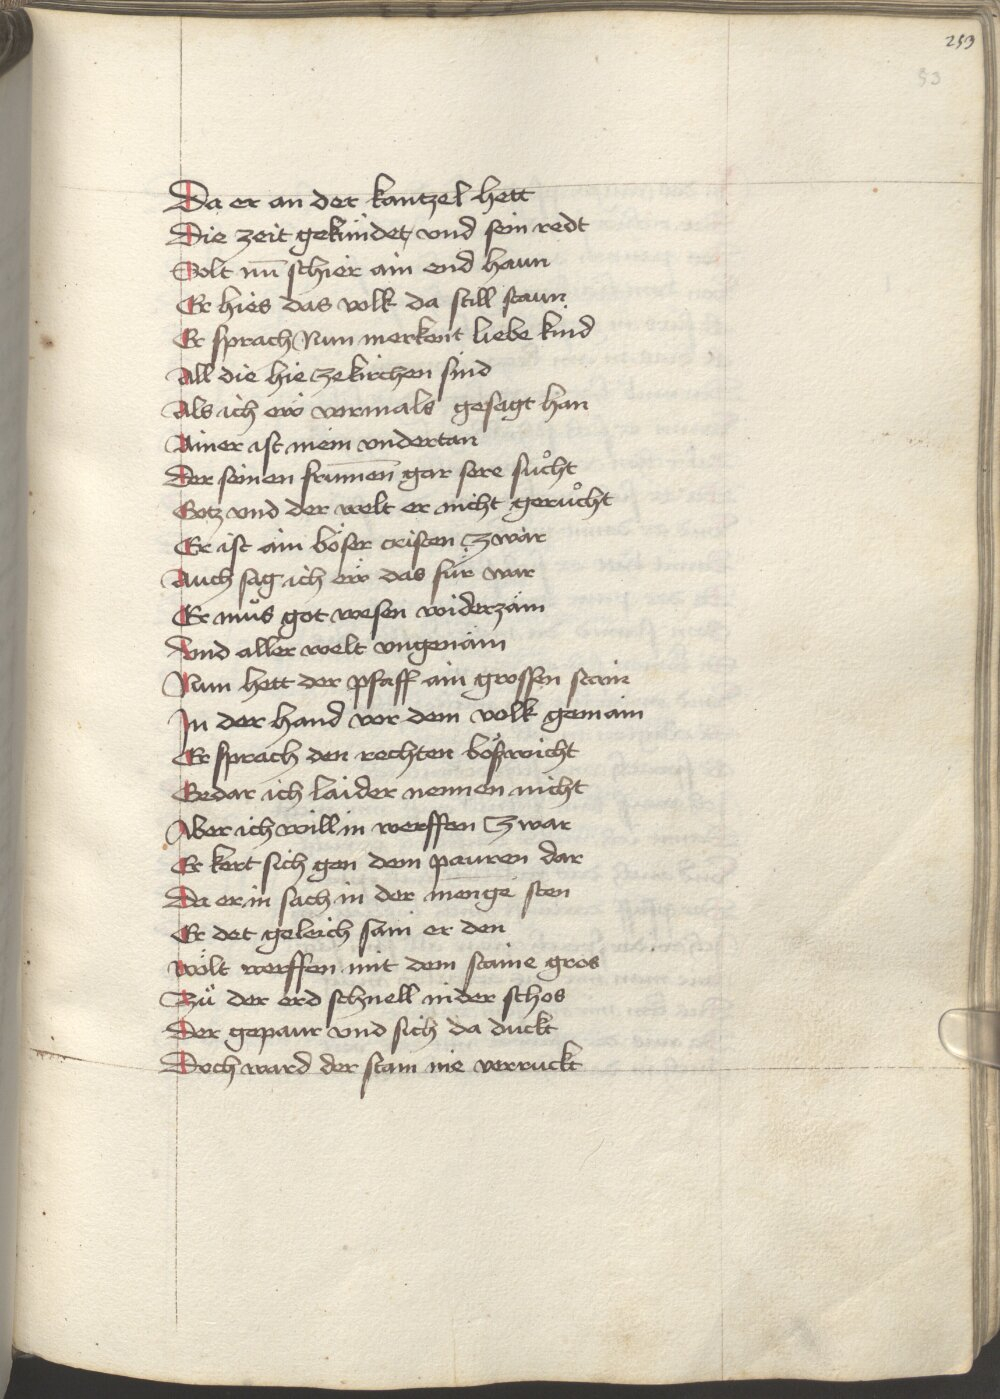 253
53
Da er an der kantzel hett
Die zeit gekündet vnd sein redt
Solt nu̅ schier ain end haun
Er hies das volk da still staun
Er sprach Nun merkent liebe kind
All die hie ze kirchen sind
Als ich ew vormals gesagt han
Ainer ist mein vndertan
Der seinen frumen̅ gar sere suͦcht
Gotz vnd der welt er nicht geruͦcht
Er ist ain böser cristen zwar
Auch sag ich ew das für war
Er muͦs got wesen widerzäm
Vnd aller welt vngenäm
Nun hett der pfaff ain grossen stain
In der hand vor dem volk gemain
Er sprach den rechten bößwicht
Gedar ich laider nennen nicht
Aber ich will in werffen zwar
Er kert sich gen dem pauren dar
Da er in sach in der menge sten
Er det geleich sam er den
wölt werffen mit dem staine gros
Zuͦ der erd schnell in der schos
Der gepaur vnd sich da duckt
Doch ward der stain nie verruckt